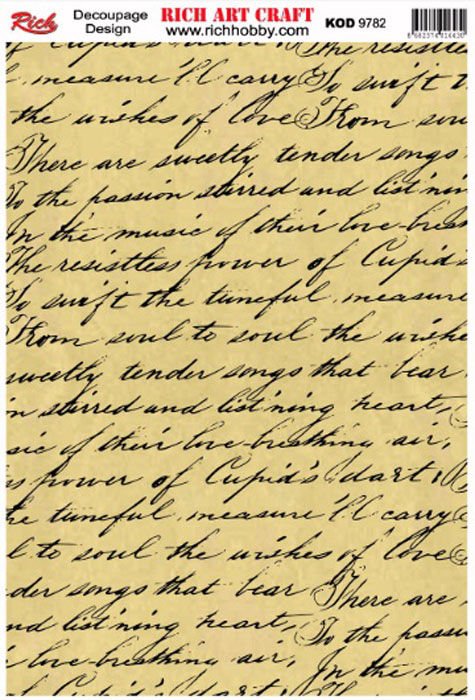 Rich Decoupage Design RICH ART CRAFT www.richhobby.com KOD 9782
8682374416420
of Cupid's dart The resistless
measure I'll carry To swift t
the wishes of love From sou
There are sweetly tender songs
To the passion stirred and list'nin
In the music of their love-breath
The resistless power of Cupid's
To swift the tuneful measure
From soul to soul the wishe
sweetly tender songs that bear
n stirred and list'ning heart,
sic of their love-breathing air,
s power of Cupid's dart;
he tuneful measure I'll carry
l to soul the wishes of love
der songs that bear There are
nd list'ning heart, To the passi
love-breathing air, In the mu
of Cupid's dart